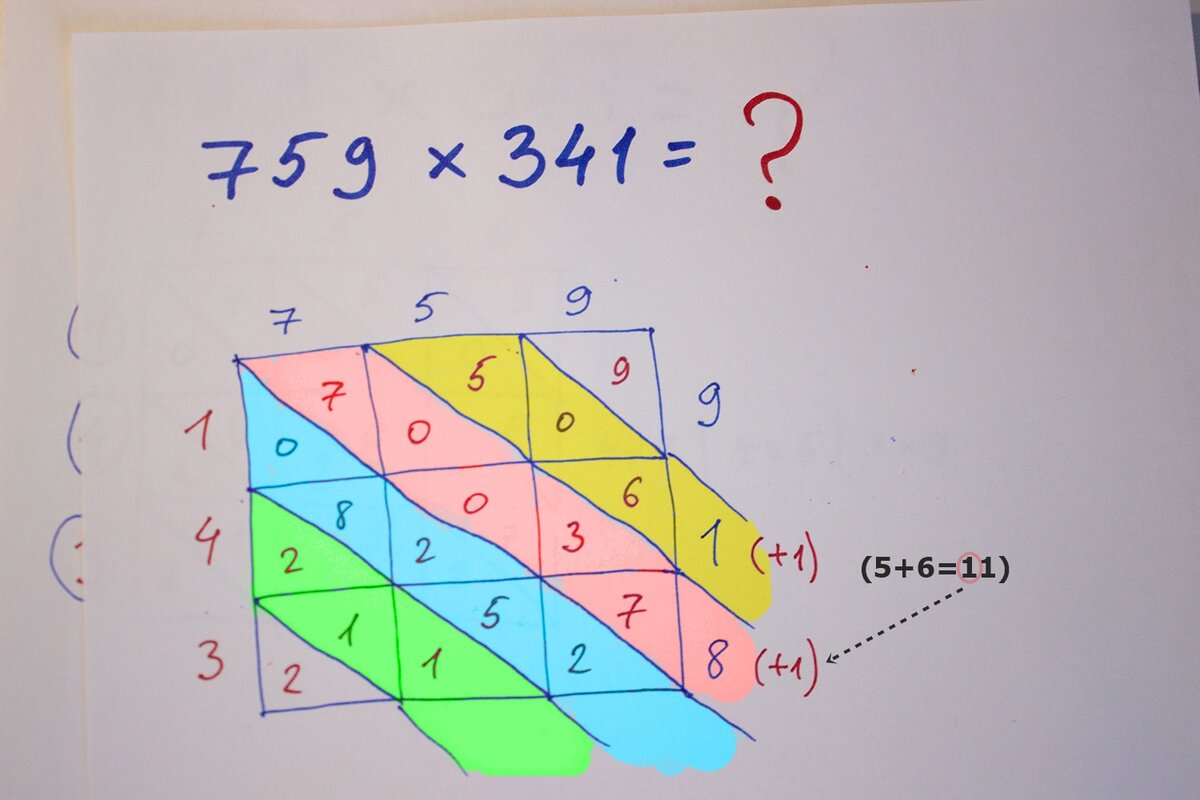 759 × 341 = ?
7 5 9
1 7 0 5 0 9 9
0
4 8 2 0 3 6 1 (+1) (5+6=11)
2
3 1 1 5 2 7 8 (+1)
2